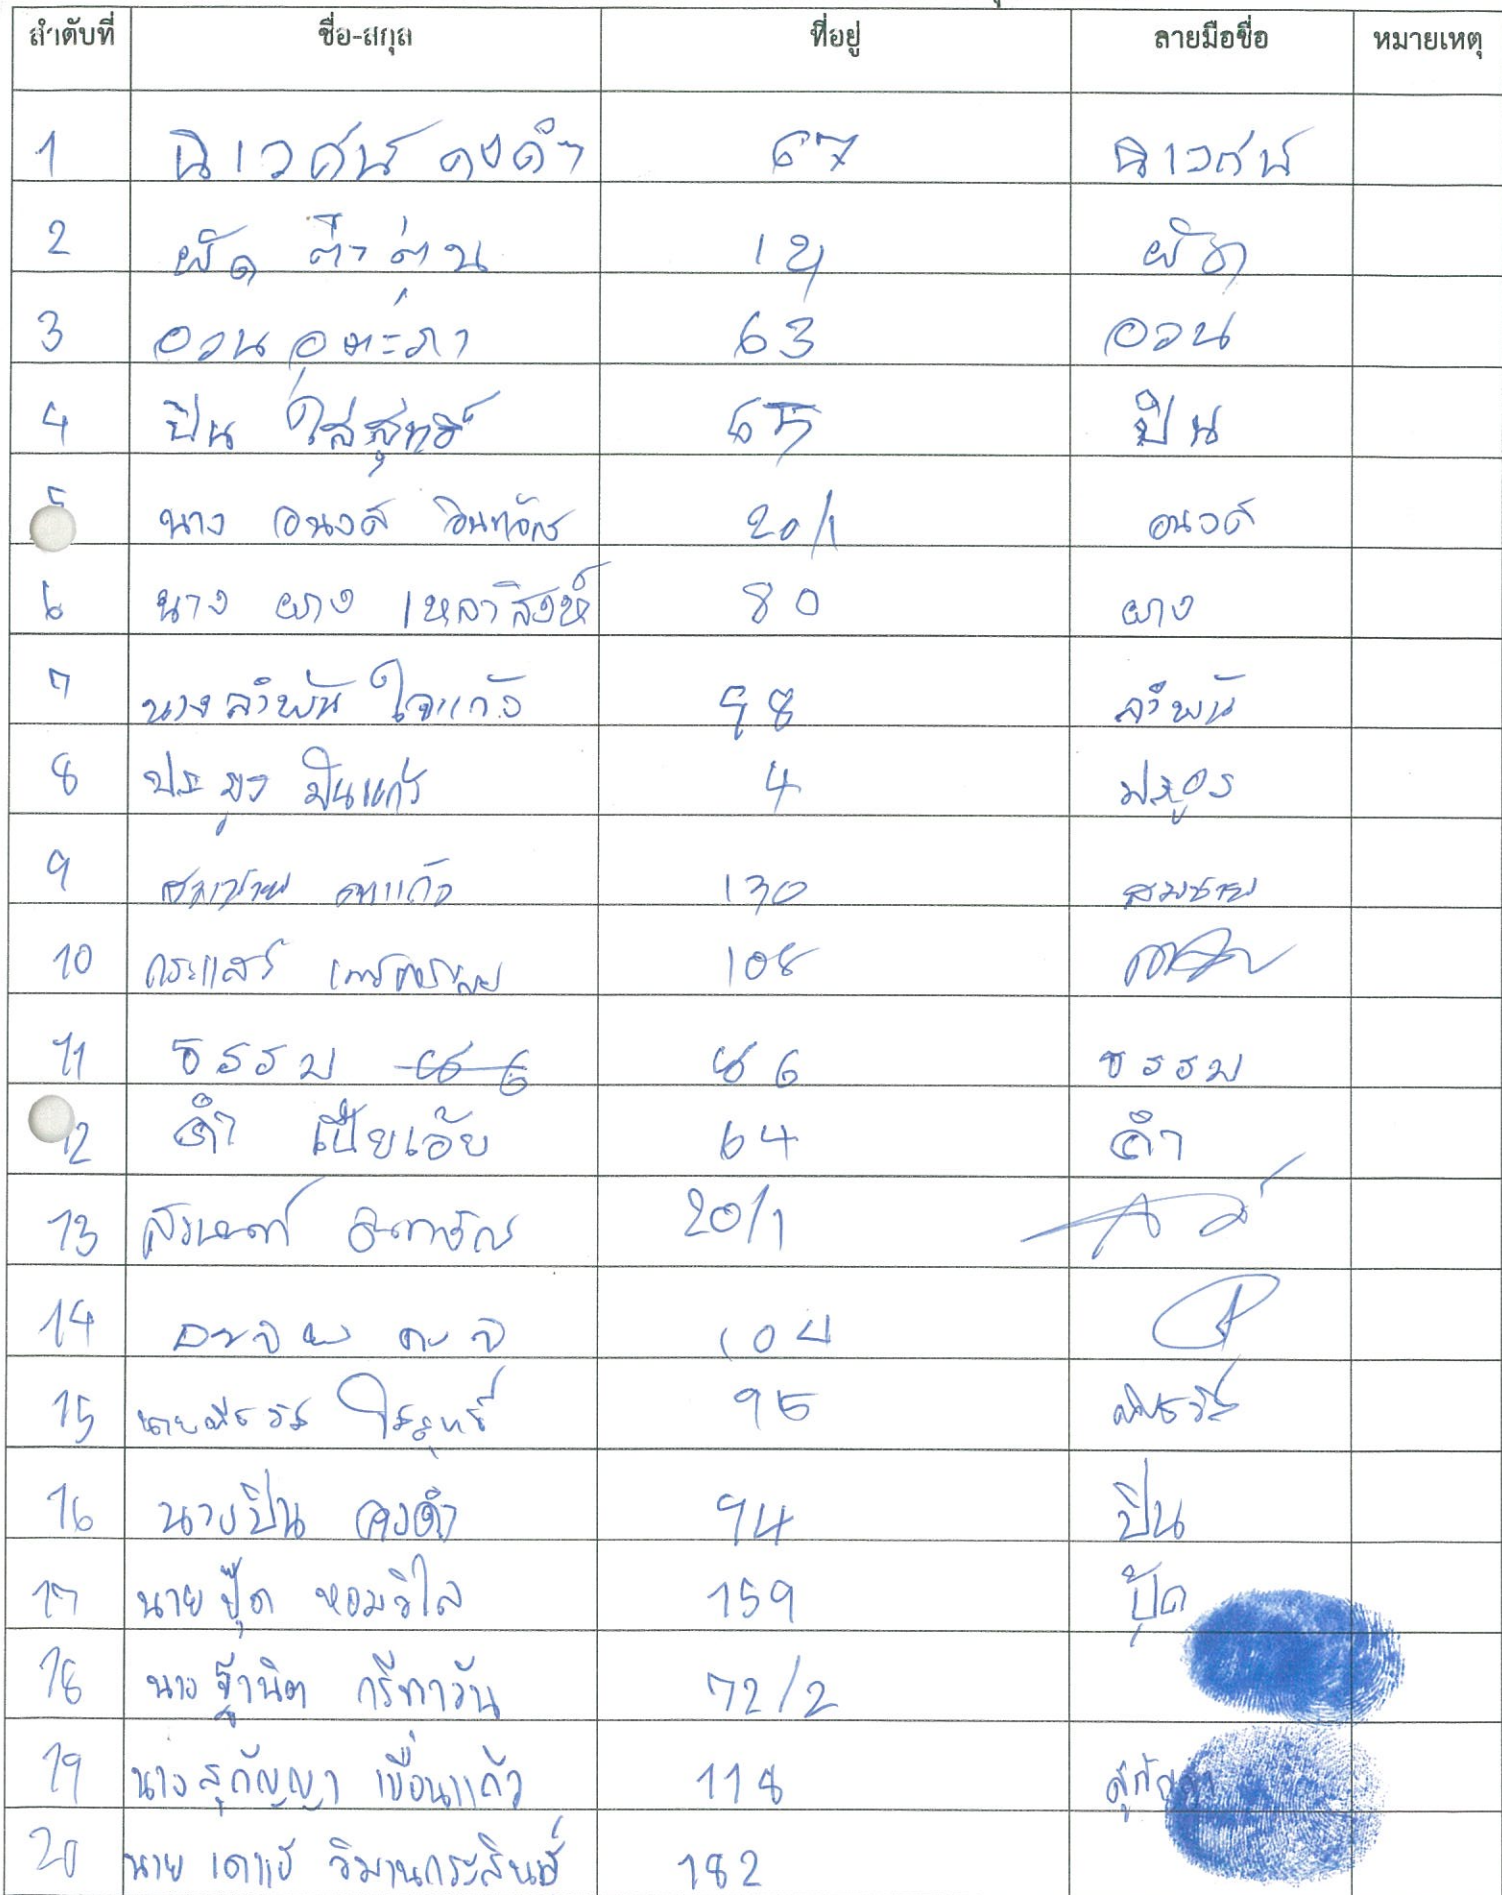 ลำดับที่ ชื่อ-สกุล ที่อยู่ ลายมือชื่อ หมายเหตุ
1 นิเวศน์ คงดำ 67 นิเวศน์
2 ผัด 12 ผัด
3 อวน อุตะภา 63 อวน
4 ปิ่น ใสสุทธิ์ 65 ปิ่น
5 นาง อนงค์ อินทจักร 20/1 อนงค์
6 นาง ผาง เหลาสิงห์ 80 ผาง
7 นางลำพัน ใจแก้ว 98 ลำพัน
8 ประยูร ปินแก้ว 4 ประยูร
9 สมชาย 130 สมชาย
10 กระแสร์ 108
11 ธรรม 86 ธรรม
12 คำ เปี้ยเอ้ย 64 คำ
13 20/1
14 104
15 นาย ใสสุทธิ์ 95
16 นางปิ่น คงคำ 94 ปิ่น
17 นายปุ๊ด หอมวิไล 159 ปุ๊ด
18 นาง ฐานิต กรีทาวัน 72/2
19 นางสุกัญญา เขื่อนแก้ว 118 สุกัญญา
20 นาย วิมานกระสินธุ์ 182